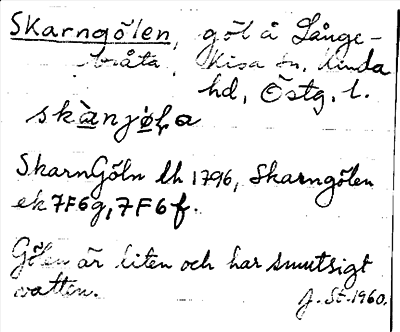 Skarngölen, göl å Långe-
bråta, Kisa sn, Kinda
hd, Östg. l.
skànjø̀ḷa
SkarnGöln lh 1796, Skarngölen
ek 7F6g, 7F6f.
Gölen är liten och har smutsigt
vatten.
J. St. 1960.